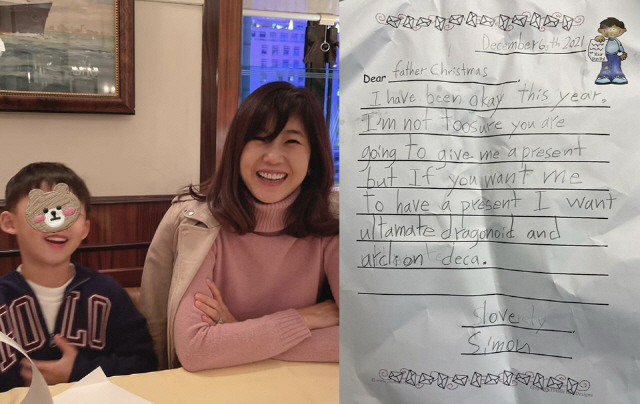 OLO
December 6,th 2021
Dear father Christmas
I have been okay this year.
I'm not toosure you are
going to give me a present
but If you want me
to have a present I want
ultamate dragonoid and
arcleon deca.
slove
Simon